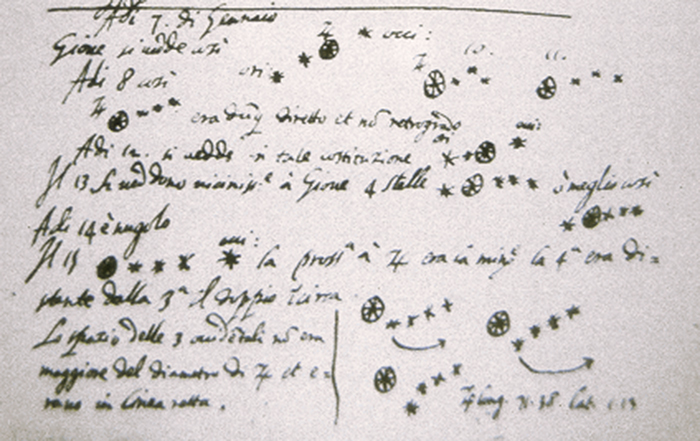 Adi 7. di Gennaio
Gione si vedde così ori: ♃ occi:
Adi 8 così ♃ 10. 11.
♃ era dũq diretto et nõ retrogrado
Adi 12. si vedde in tale costituzione ori occi:
Il 13 si veddono vicinissᵉ à Gione 4 stelle ò meglio così
Adi 14 è nugolo
Il 15 occi: la prossᵃ à ♃ era la minᵉ la 4ᵃ era di=
stante dalla 3ᵃ il doppio circa
Lo spazio delle 3 occidẽtali nõ era
maggiore del diametro di ♃ et e=
rano in linea retta.
♃ long. 71.38 lat. 1.13